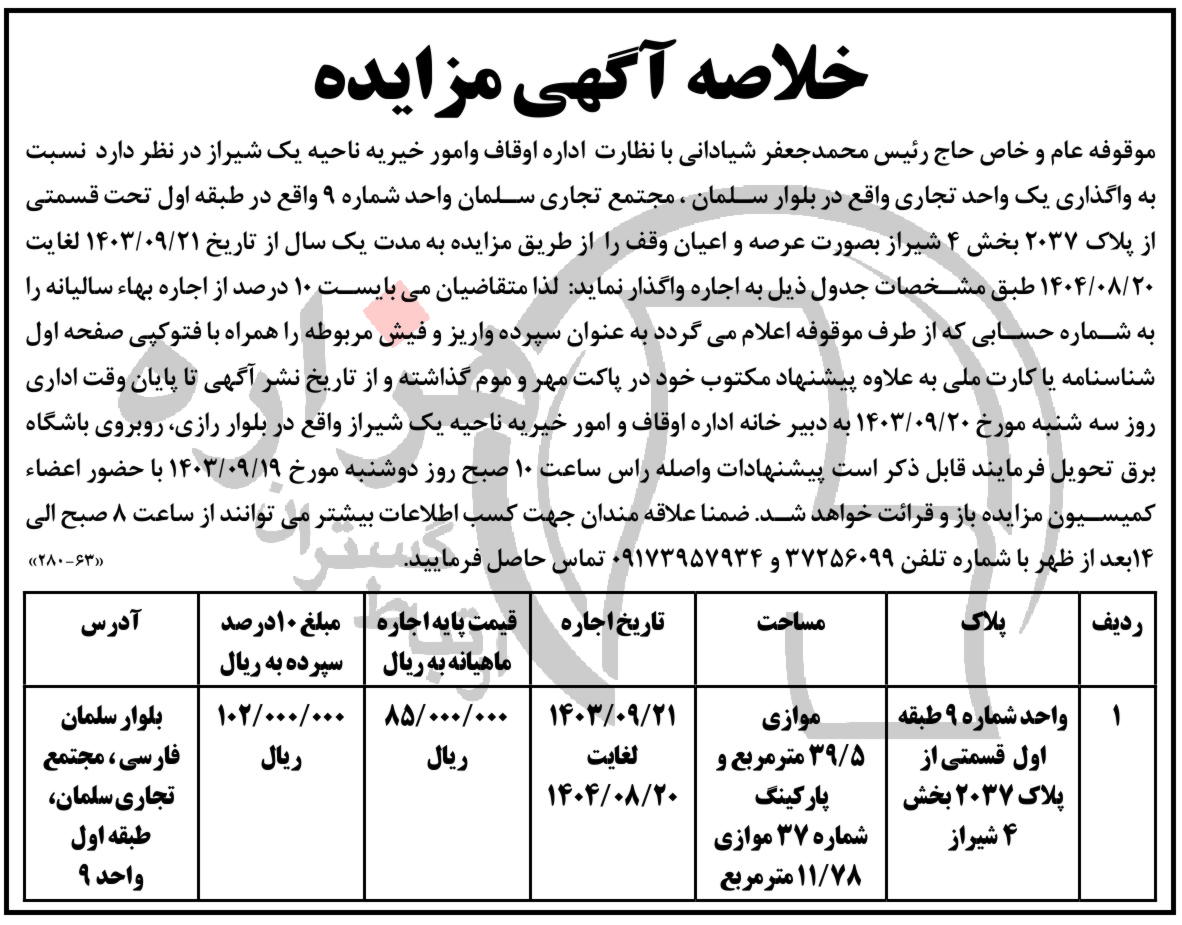 خلاصه آگهی مزایده
موقوفه عام و خاص حاج رئیس محمدجعفر شیادانی با نظارت اداره اوقاف وامور خیریه ناحیه یک شیراز در نظر دارد نسبت
به واگذاری یک واحد تجاری واقع در بلوار سلمان ، مجتمع تجاری سلمان واحد شماره ۹ واقع در طبقه اول تحت قسمتی
از پلاک ۲۰۳۷ بخش ۴ شیراز بصورت عرصه و اعیان وقف را از طریق مزایده به مدت یک سال از تاریخ ۱۴۰۳/۰۹/۲۱ لغایت
۱۴۰۴/۰۸/۲۰ طبق مشخصات جدول ذیل به اجاره واگذار نماید: لذا متقاضیان می بایست ۱۰ درصد از اجاره بهاء سالیانه را
به شماره حسابی که از طرف موقوفه اعلام می گردد به عنوان سپرده واریز و فیش مربوطه را همراه با فتوکپی صفحه اول
شناسنامه یا کارت ملی به علاوه پیشنهاد مکتوب خود در پاکت مهر و موم گذاشته و از تاریخ نشر آگهی تا پایان وقت اداری
روز سه شنبه مورخ ۱۴۰۳/۰۹/۲۰ به دبیر خانه اداره اوقاف و امور خیریه ناحیه یک شیراز واقع در بلوار رازی، روبروی باشگاه
برق تحویل فرمایند قابل ذکر است پیشنهادات واصله راس ساعت ۱۰ صبح روز دوشنبه مورخ ۱۴۰۳/۰۹/۱۹ با حضور اعضاء
کمیسیون مزایده باز و قرائت خواهد شد. ضمنا علاقه مندان جهت کسب اطلاعات بیشتر می توانند از ساعت ۸ صبح الی
۱۴بعد از ظهر با شماره تلفن ۳۷۲۵۶۰۹۹ و ۰۹۱۷۳۹۵۷۹۳۴ تماس حاصل فرمایید. «۲۸۰-۶۳»
ردیف پلاک مساحت تاریخ اجاره قیمت پایه اجاره مبلغ ۱۰درصد آدرس
ماهیانه به ریال سپرده به ریال
۱ واحد شماره ۹ طبقه موازی ۱۴۰۳/۰۹/۲۱ ۸۵/۰۰۰/۰۰۰ ۱۰۲/۰۰۰/۰۰۰ بلوار سلمان
اول قسمتی از ۳۹/۵ مترمربع و لغایت ریال ریال فارسی ، مجتمع
پلاک ۲۰۳۷ بخش پارکینگ ۱۴۰۴/۰۸/۲۰ تجاری سلمان،
۴ شیراز شماره ۳۷ موازی طبقه اول
۱۱/۷۸ مترمربع واحد ۹
هزاره
گستران
ارتباط